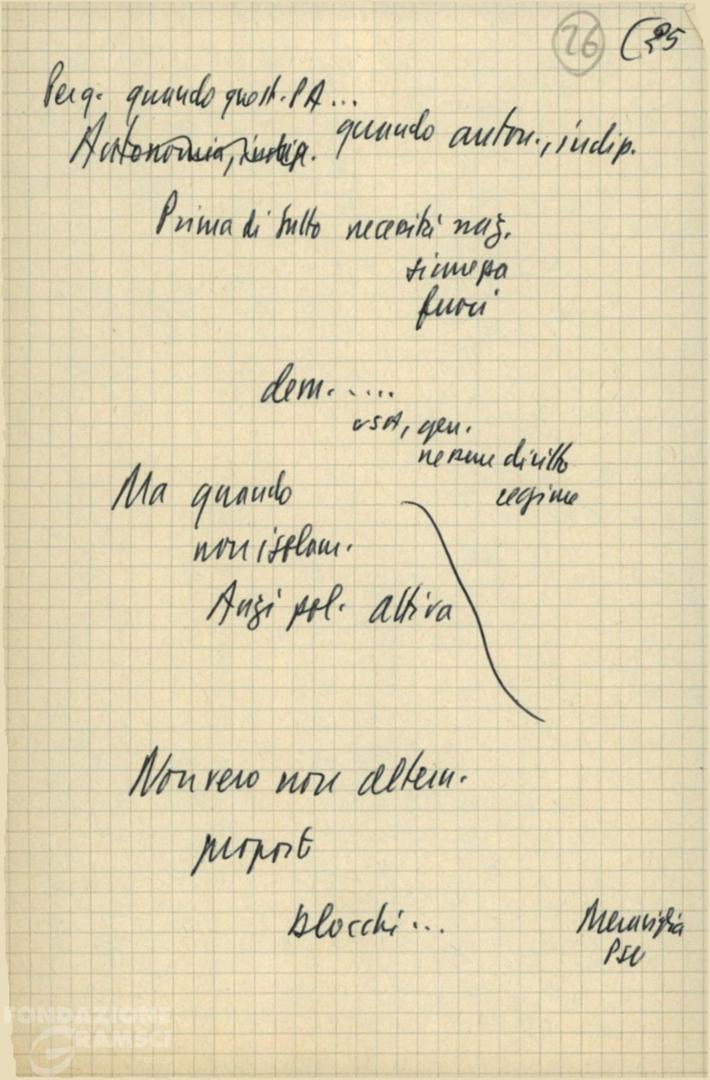 26 (25
Perq. quando quest. PA...
Autonomia, indip. quando auton., indip.
Prima di tutto necessità naz.
sicurezza
fuori
dem. .....
USA, gen.
nessun diritto
regime
Ma quando
non isolam.
Anzi pol. attiva
Non vero non altern.
propost
blocchi...
Meraviglia
PSI
FONDAZIONE
GRAMSCI